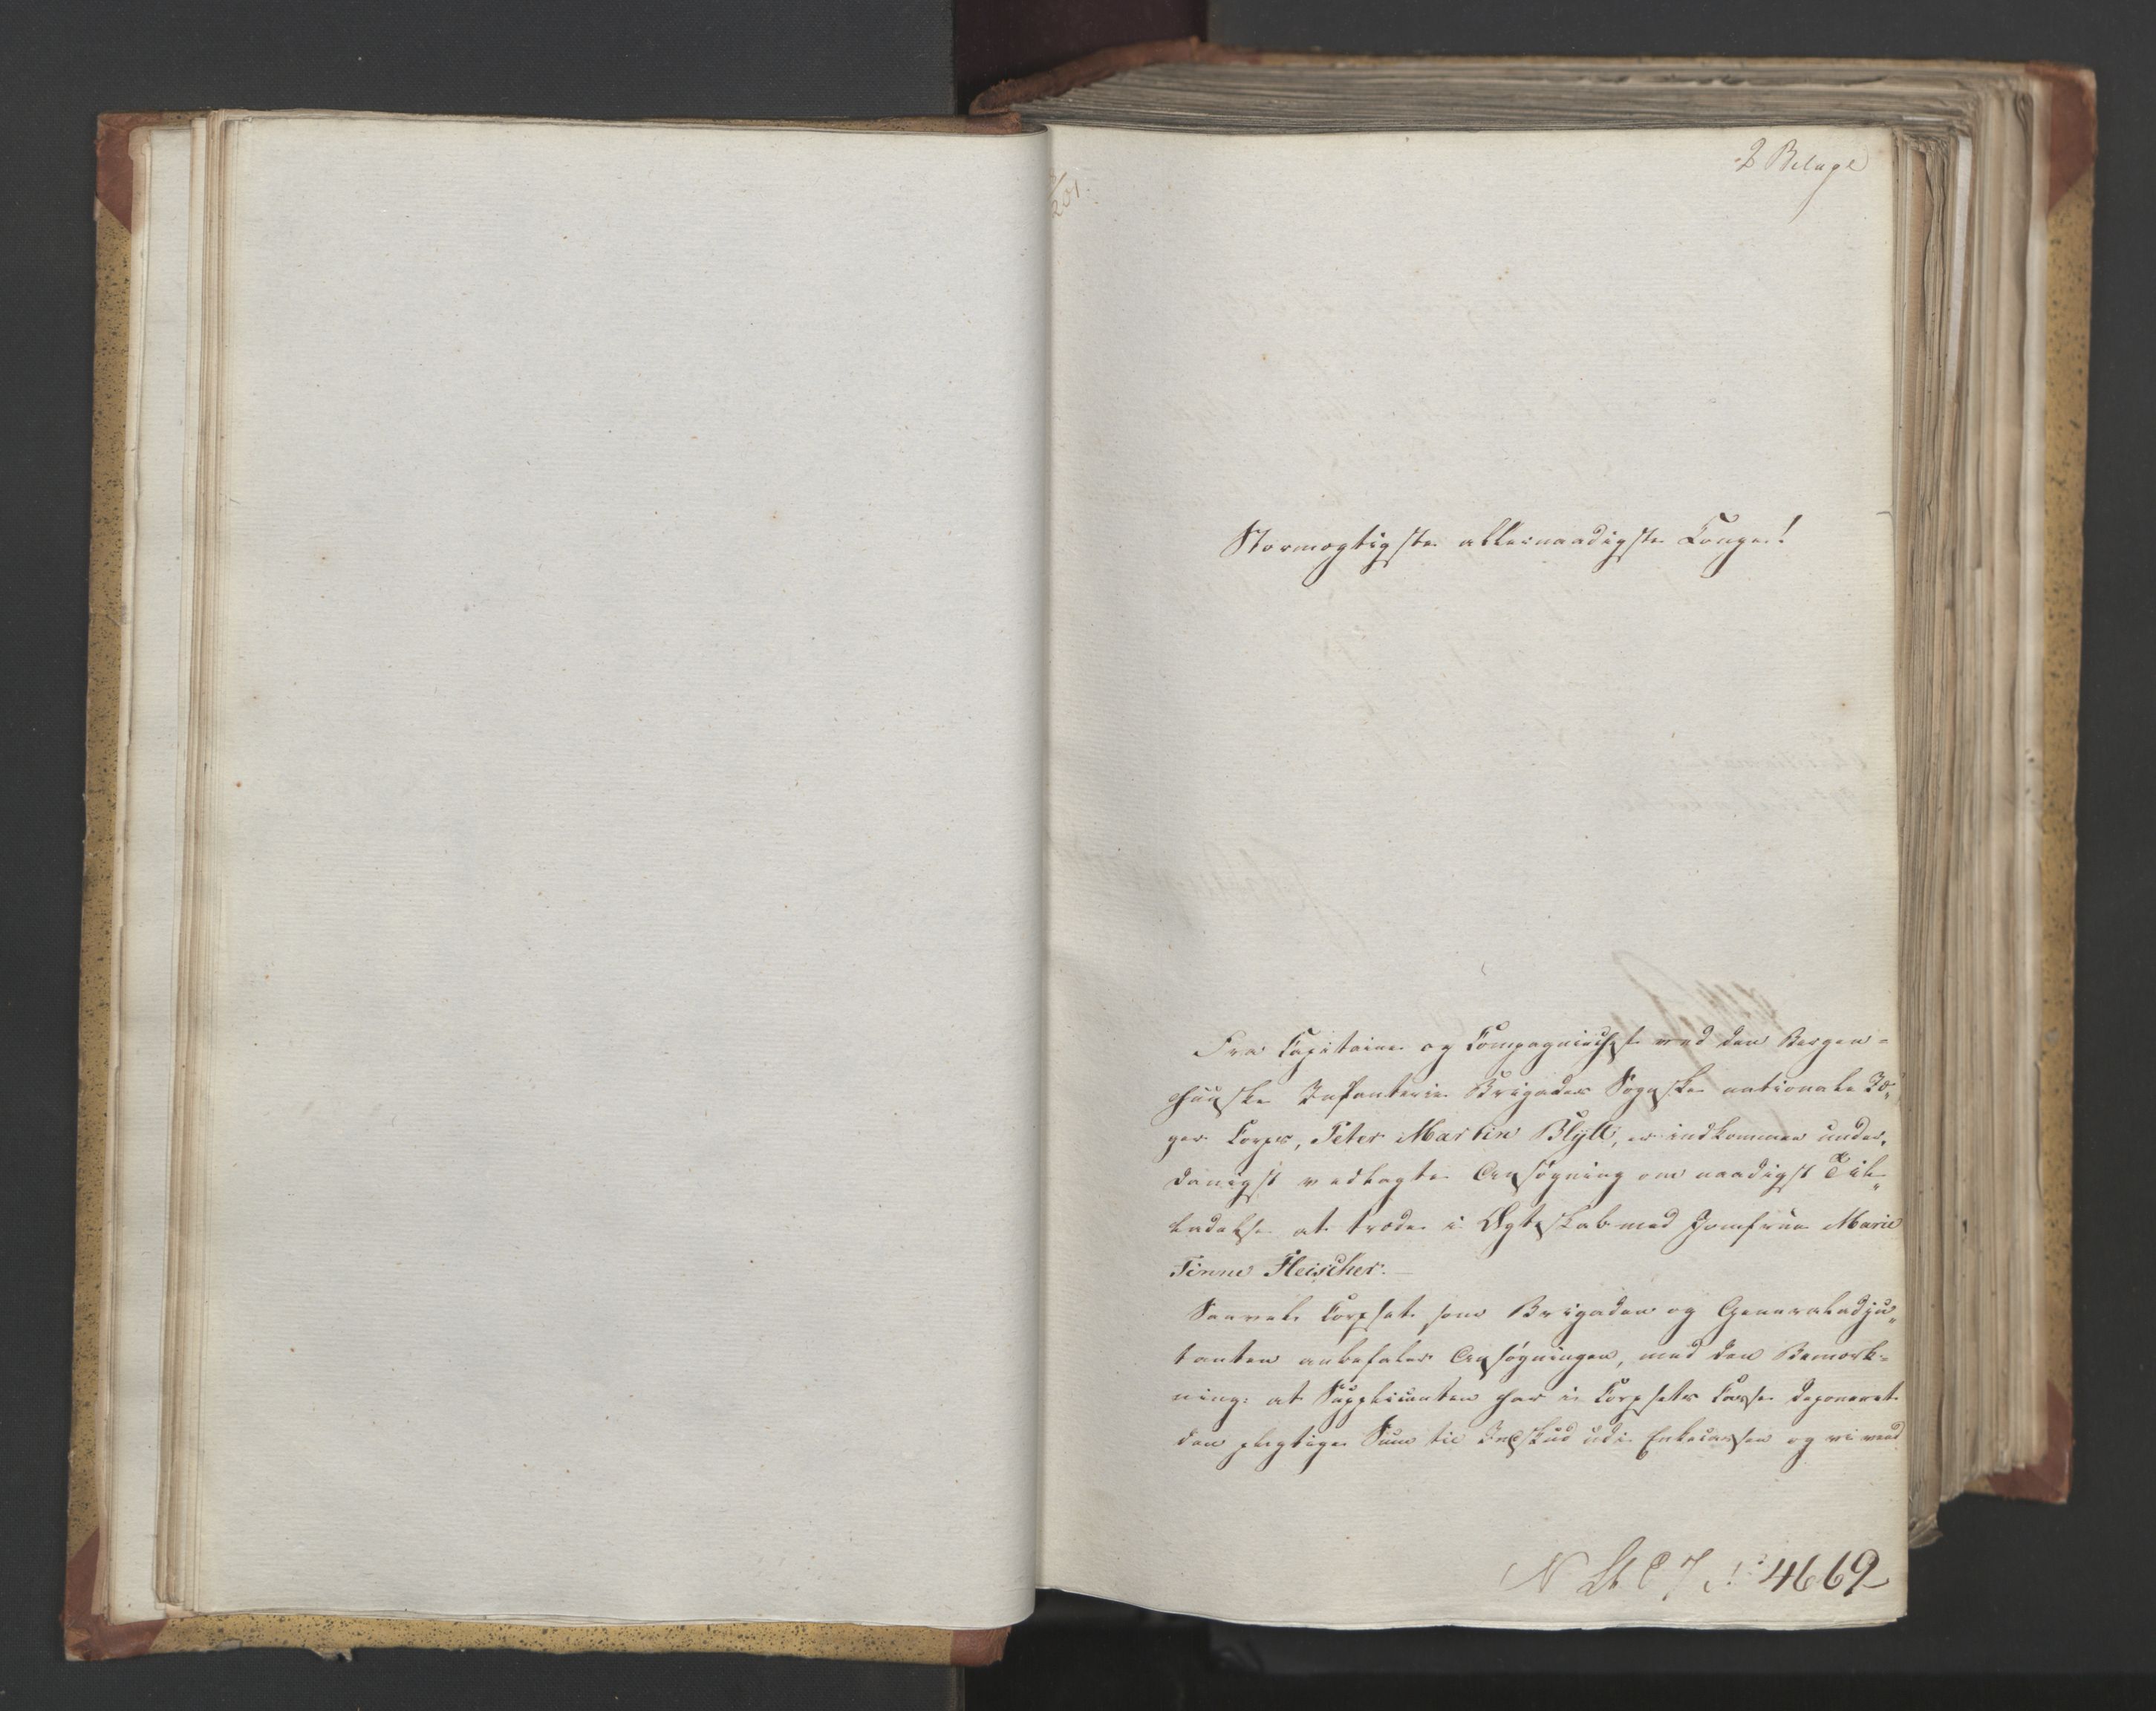 2 Bilage
Stormægtigste allernaadigste Konge!
Fra Capitaine og Compagniechef ved den Bergen-
huusske Infanterie Brigades Sognske nationale Jæ-
ger Corps, Peter Martin Blÿtt, er indkommen under-
danigst vedlagte Ansøgning om naadigst Til-
ladelse at træde i Ægteskab med Jomfrue Marie
Finne Fleischer.
Saavel Corpset som Brigaden og Generaladju-
tanten anbefaler Ansøgningen, med den Bemærk-
ning: at Supplicanten har i Corpsets Casse deponeret
den plegtige Sum til Indskud udi Enkecassen og vi med
4669